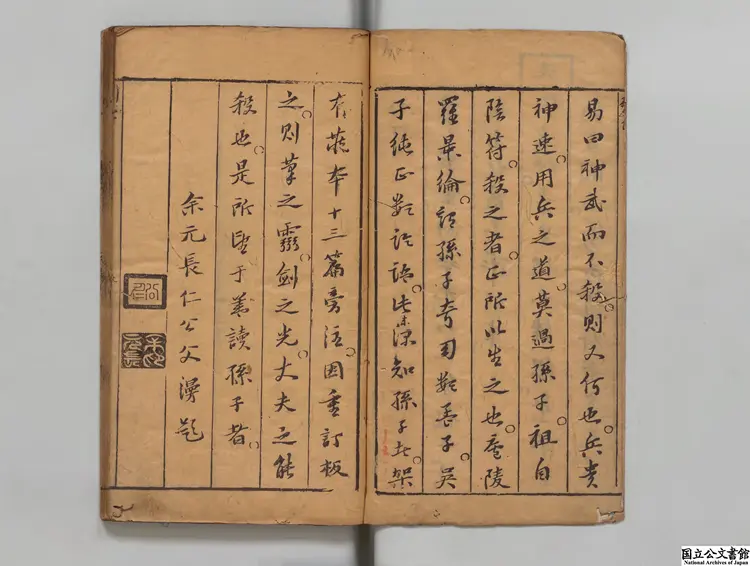 易曰神武而不殺則又何也兵貴
神速用兵之道莫過孫子祖自
陰符殺之者正所以生之也廬陵
羅景綸謂孫子奇司數吾子吳
子純正數論語此深知孫子者架
有蔣本十三篇旁注因重訂板
之則筆之靈劍之光丈夫之能
殺也是所望于善讀孫子者
余元長仁公父漫題
国立公文書館
National Archives of Japan